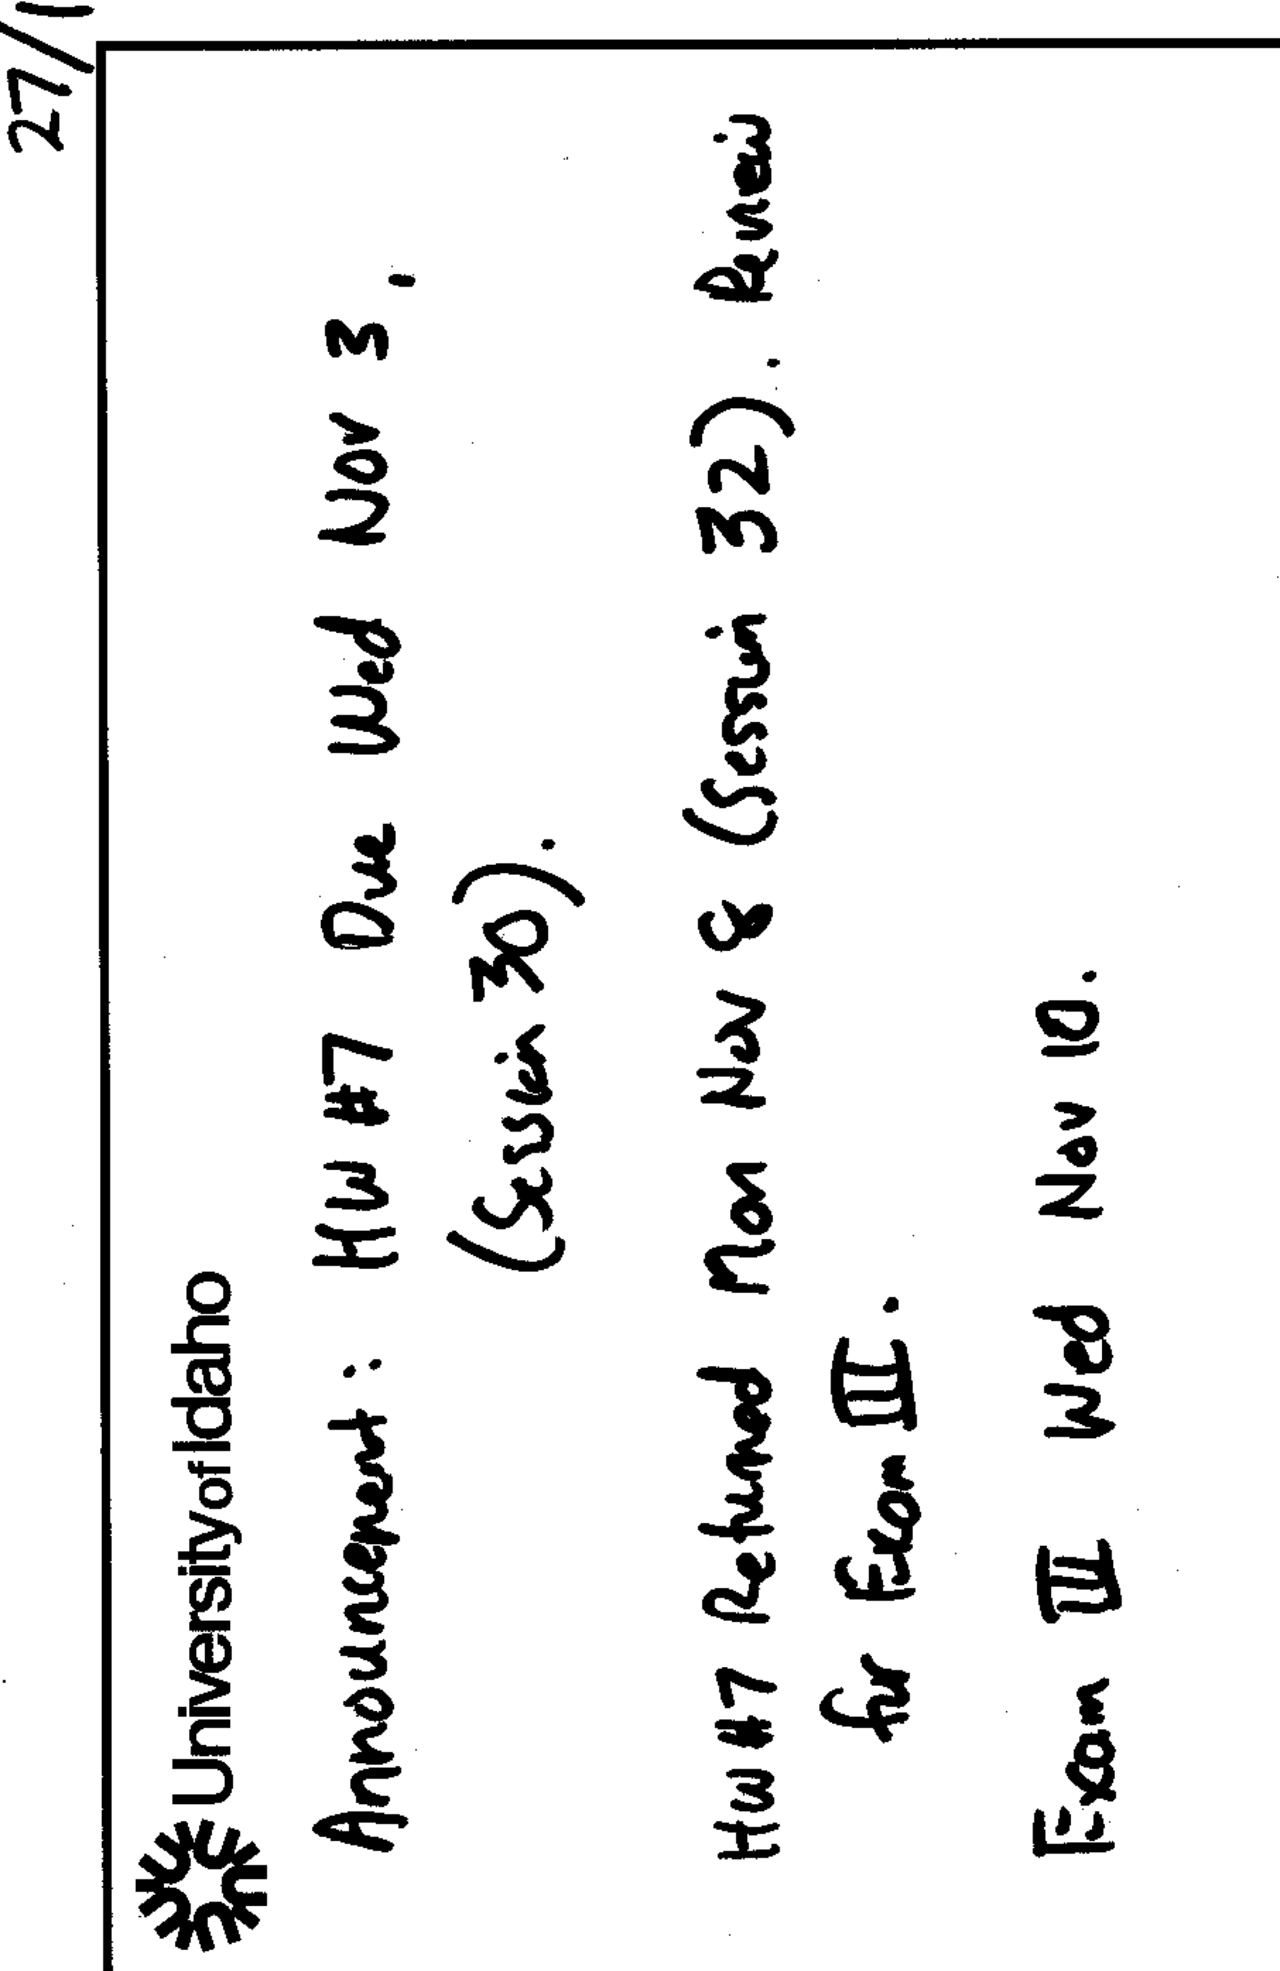 27/1
University of Idaho
Announcement: HW #7 Due Wed Nov 3,
(Session 30).
HW #7 Returned Mon Nov 8 (Session 32). Review
for Exam III.
Exam III Wed Nov 10.